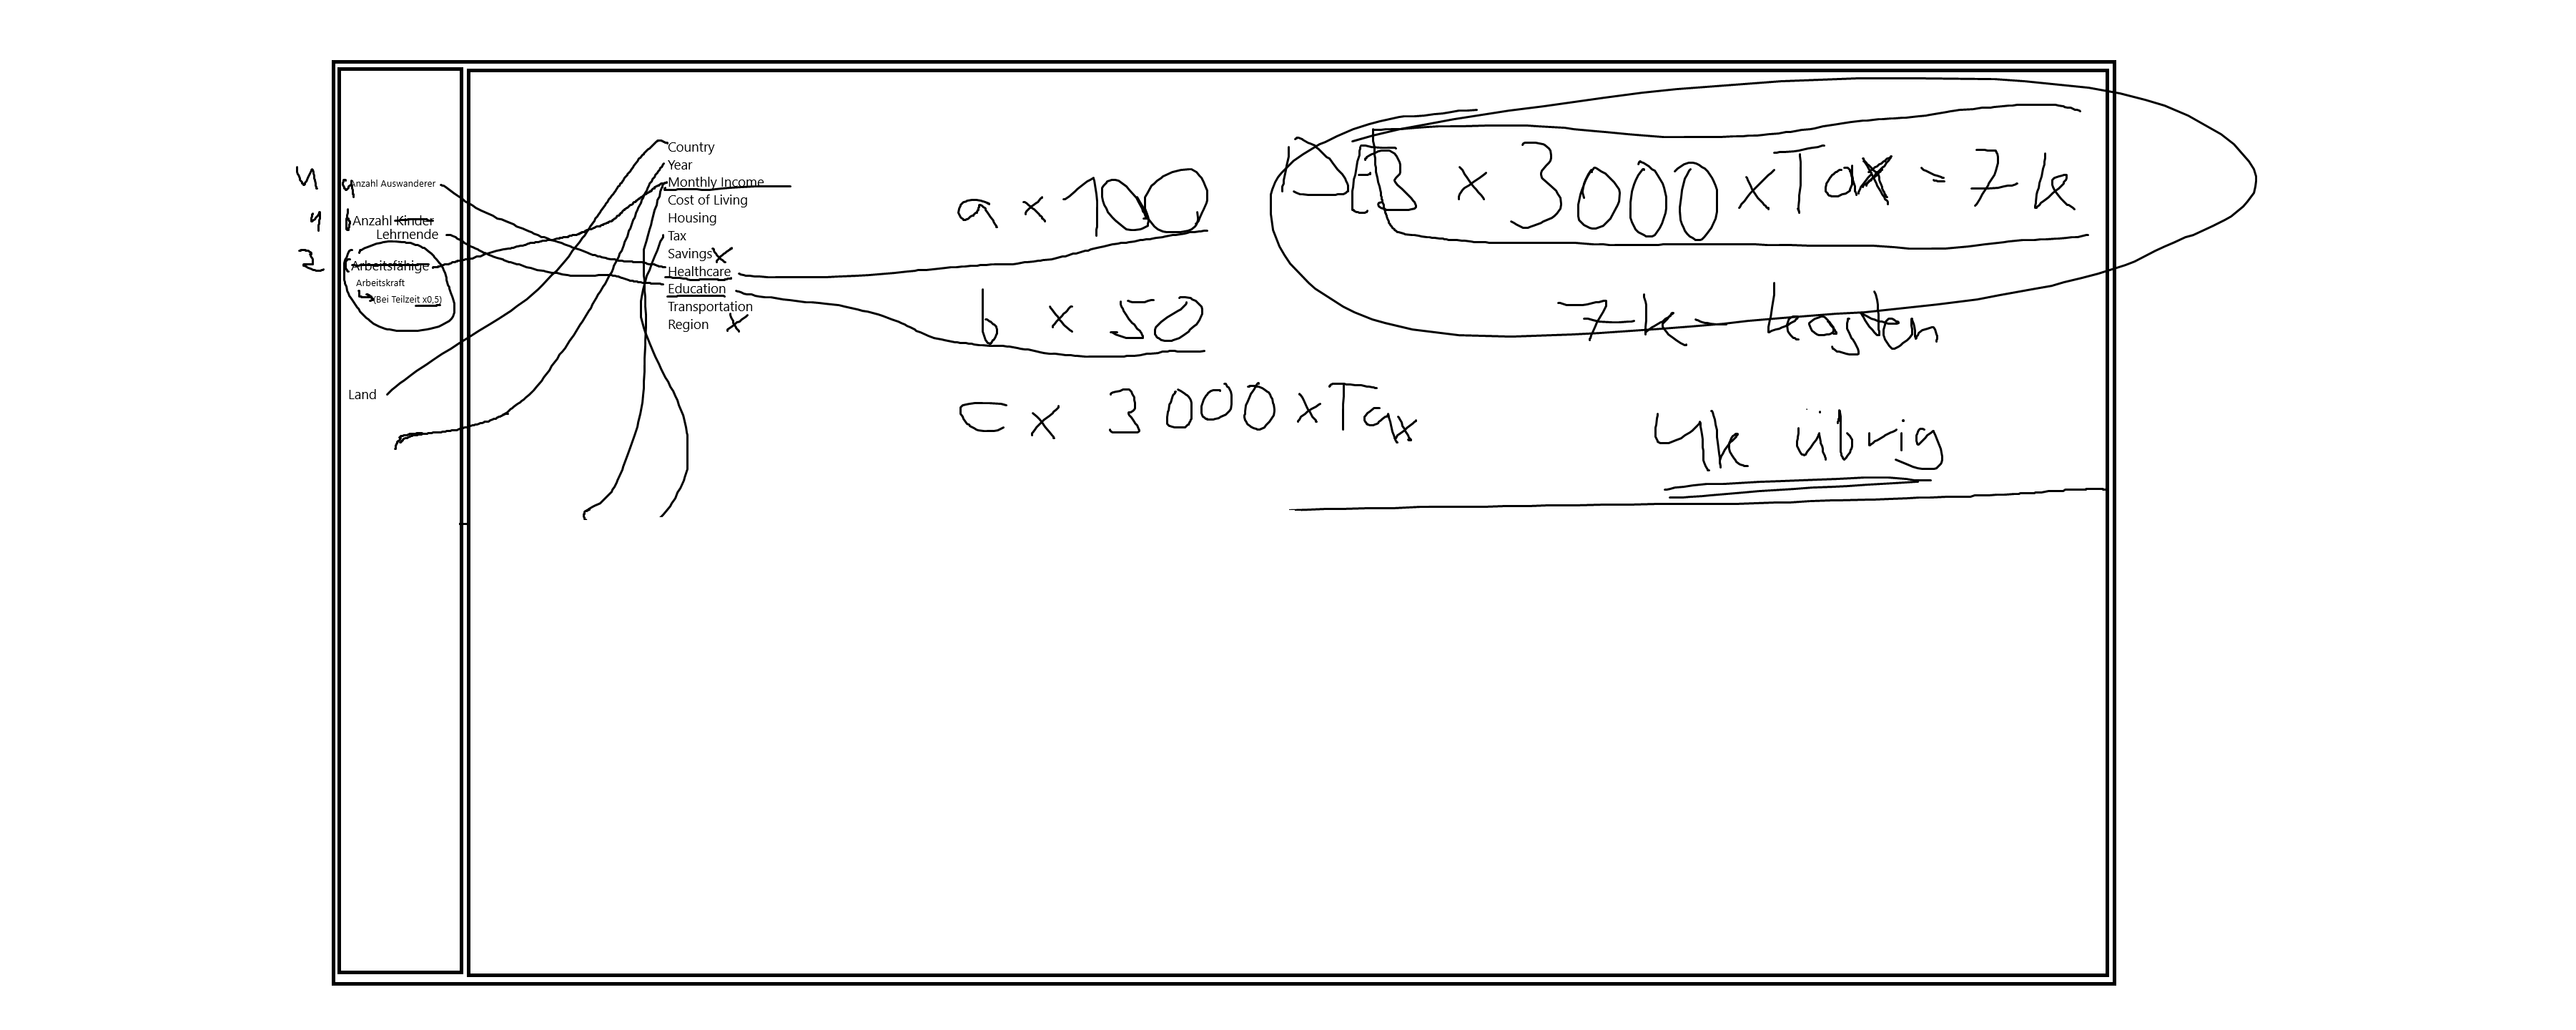 4 a Anzahl Auswanderer
4 b Anzahl Kinder
Lehrnende
c Arbeitsfähige
Arbeitskraft
(Bei Teilzeit x0,5)
Land
Country
Year
Monthly Income
Cost of Living
Housing
Tax
Savings x
Healthcare
Education
Transportation
Region x
a x 100
b x 50
c x 3000 x Tax
x 3000 x Tax = 7k
7k - kosten
4k übrig